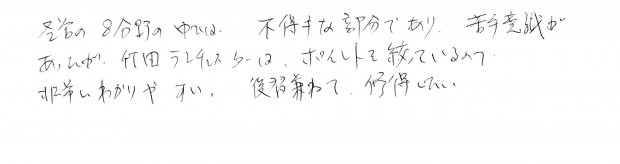 経営の8分野の中では、不得手な部分であり、苦手意識が
あったが、竹田ランチェスターは、ポイントを絞っているので
非常にわかりやすい。復習兼ねて、修得したい